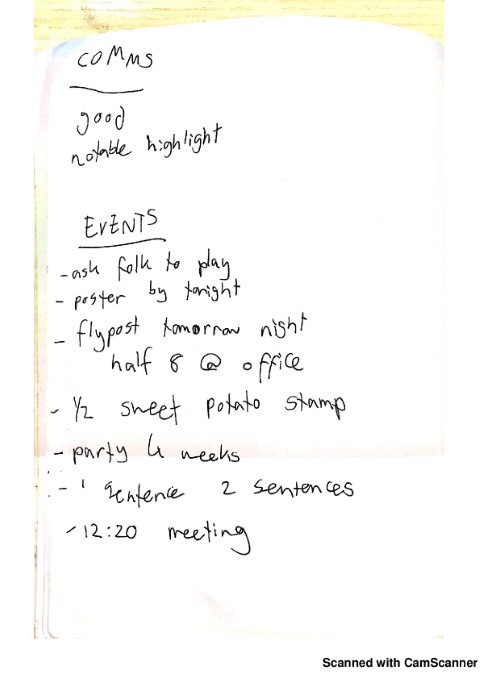 COMMS
good
notable highlight
EVENTS
- ask folk to play
- poster by tonight
- flypost tomorrow night
half 8 @ office
- 1/2 sheet potato stamp
- party 4 weeks
- 1 sentence 2 sentences
- 12:20 meeting
Scanned with CamScanner